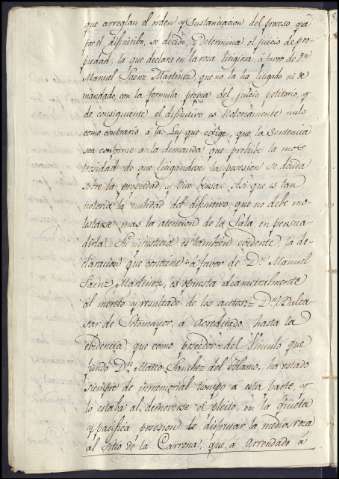 que arreglan el orden y sustanciacion del proceso que
por el difinitibo, se decide y determina el juicio de pro-
piedad, la que declara en la roca tercera, á favor de Dn
Manuel Saenz Martinez, que no la ha litigado ni se
mandado con la formula propia del juicio petitorio, y
de consiguiente el difinitivo es notoriamente nulo
como contrario á la Ley que exige, que la sentencia
sea conforme con la demanda, que prohibe la mons-
truosidad de que litigandose la posesion se decida
sobre la propiedad, y Dior. Asi que es tan
notoria la nulidad del difinitivo que no debe mo-
lestarse mas la atencion de la Sala en persua-
dirla. Su injusticia es tambien evidente, la de-
claracion que contiene á favor de Dn Manuel
Saenz Martinez, es opuesta diametralmente
al merito y resultado de los autos: Dn Balta-
sar de Sotomayor, á acreditado hasta la
evidencia que como poseedor del Vinculo que
fundó Dn Mateo Sanchez del Alamo, ha estado
siempre de inmemorial tiempo á esta parte, y
lo estaba al demoverse el pleito, en la quieta
y pacifica posesion de disfrutar la media roca
al sitio de la Carrona, que á arrendado á